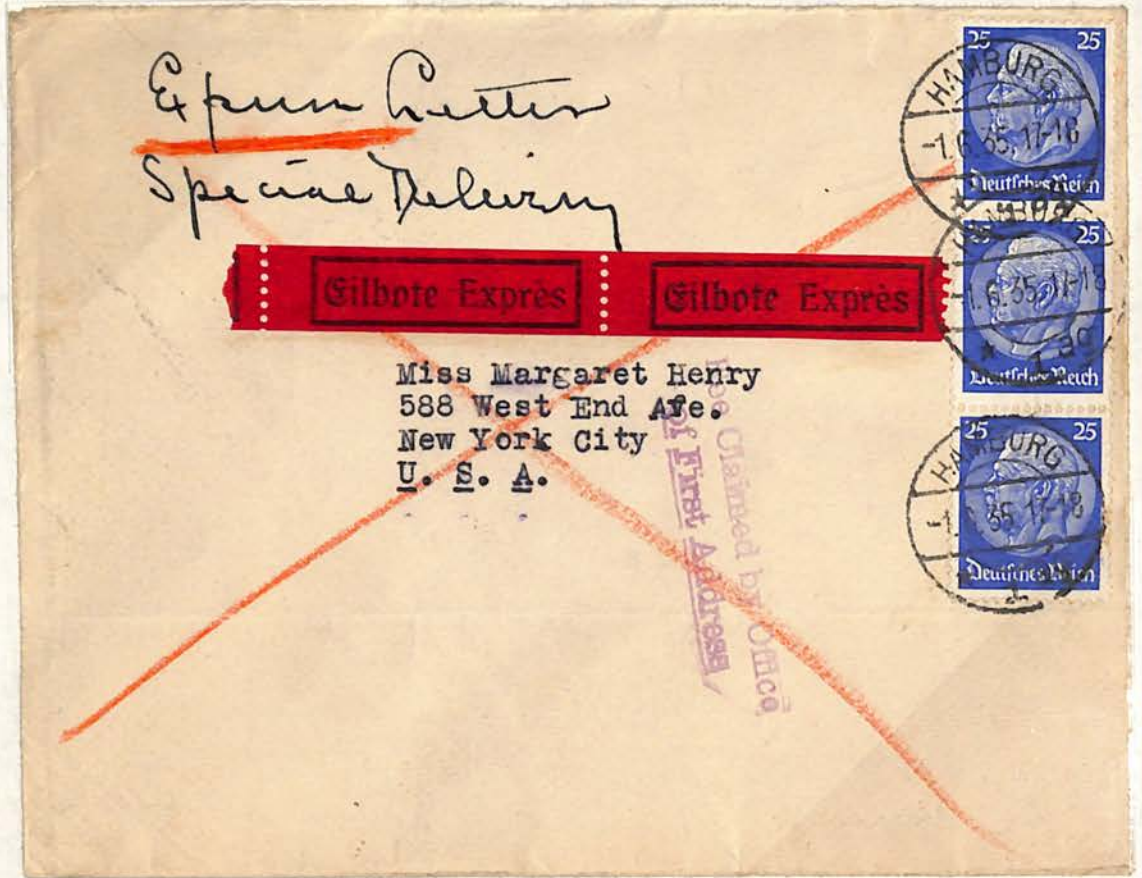 Express Letter
Special Delivery
Eilbote Exprès
Eilbote Exprès
Miss Margaret Henry
588 West End Ave.
New York City
U. S. A.
Fee Claimed by Office
of First Address
25 25
Deutsches Reich
HAMBURG
-1.6.35.17-18
25
Deutsches Reich
1.6.35.17-18
25 25
Deutsches Reich
HAMBURG
-1.6.35.17-18